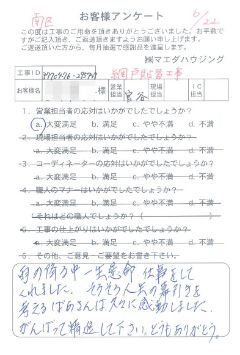 南区
6/22
お客様アンケート
この度は工事のご用命を頂きありがとうございました。お手数で
すがご記入頂き、ご返送頂きますようお願い申し上げます。
ご返送頂いた方から、毎月抽選で感謝品を進呈します。
㈱マエダハウジング
工事ID
網戸貼替工事
お客様名
様
営業担当
菅谷
現場担当
IC担当
1. 営業担当者の応対はいかがでしたでしょうか?
a.大変満足 b.満足 c.やや不満 d.不満
2. 現場担当者の応対はいかがでしたでしょうか?
a.大変満足 b.満足 c.やや不満 d.不満
3. コーディネーターの応対はいかがでしたでしょうか?
a.大変満足 b.満足 c.やや不満 d.不満
4. 職人のマナーはいかがでしたでしょうか?
a.大変満足 b.満足 c.やや不満 d.不満
それはどの職人でしょうか?(
6. 工事の仕上がりはいかがでしたでしょうか?
a.大変満足 b.満足 c.やや不満 d.不満
5. その他、ご意見、ご要望をお書き下さい。
雨の降る中一生懸命仕事をして
くれました。そろそろ人生の幕引きを
考えるばあさんは久々に感動しました。
がんばって精進して下さい。とてもありがとう。